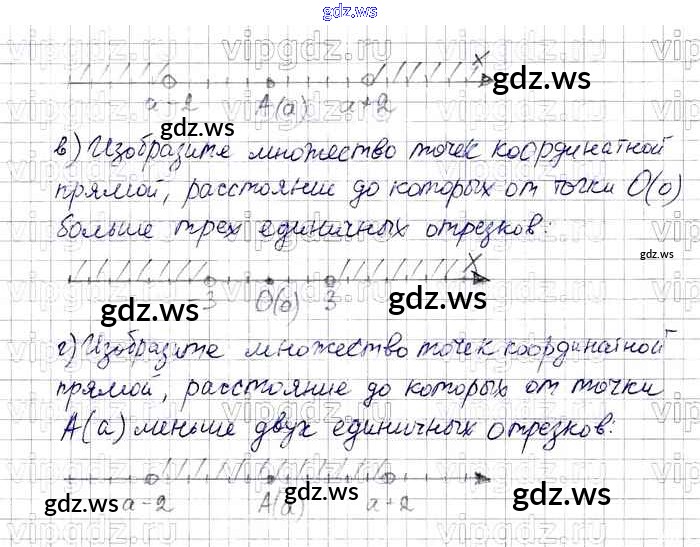 gdz.ws
vipgdz.ru
x
gdz.ws
a-2 A(a) a+2
gdz.ws
в) Изобразите множество точек координатной
прямой, расстояние до которых от точки O(o)
больше трех единичных отрезков:
gdz.ws
x
-3 O(o) 3
gdz.ws gdz.ws
г) Изобразите множество точек координатной
прямой, расстояние до которых от точки
A(a) меньше двух единичных отрезков:
a-2 A(a) a+2
gdz.ws gdz.ws gdz.ws